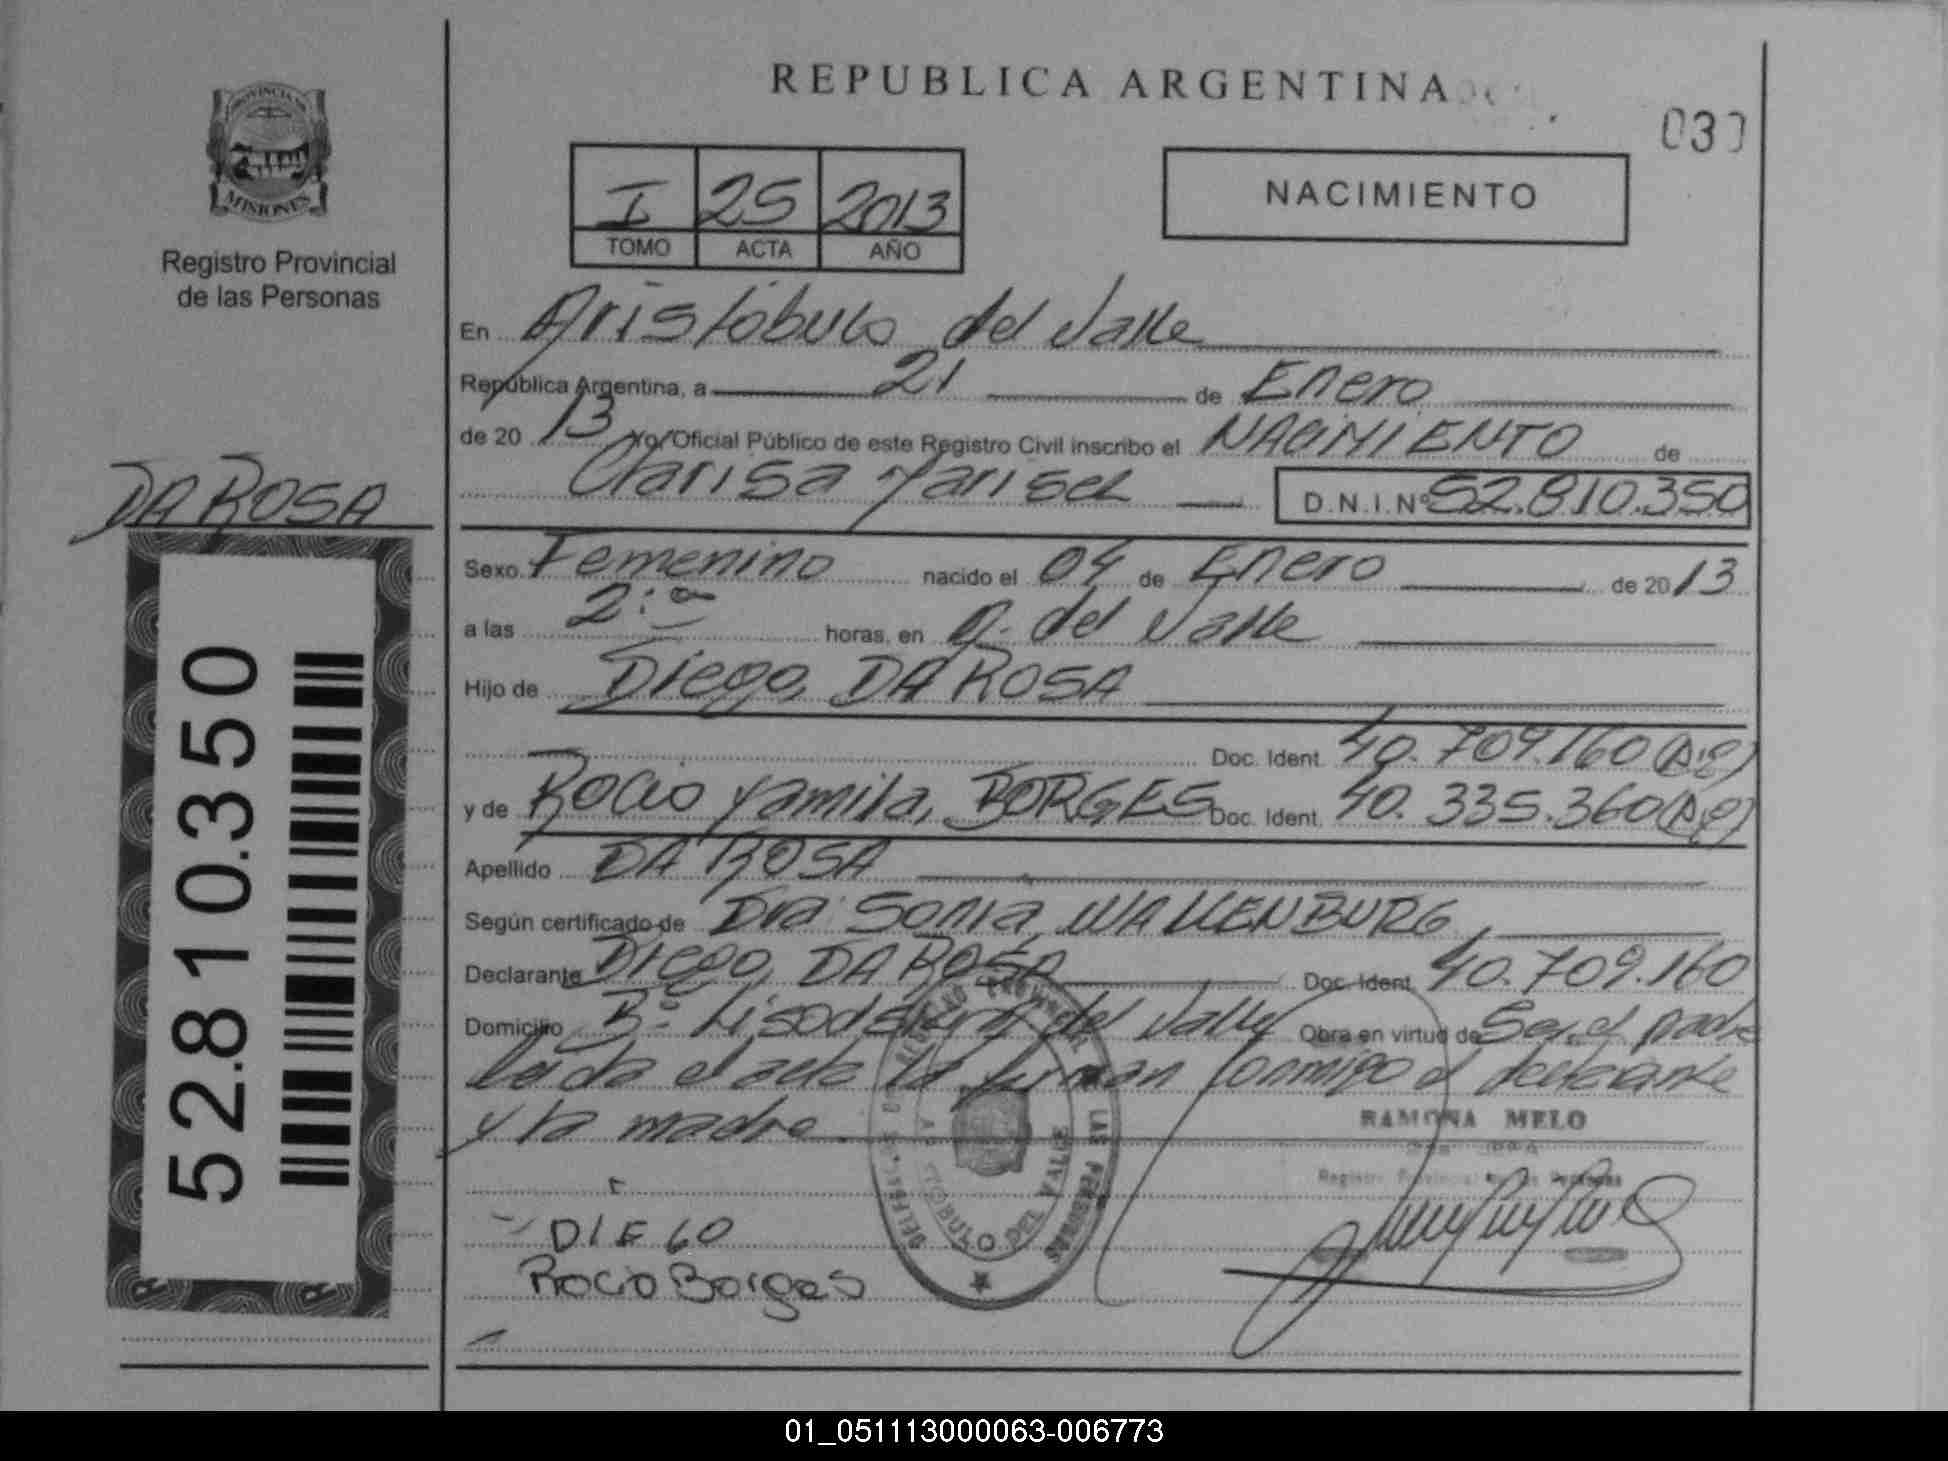 REPUBLICA ARGENTINA
030
PROVINCIA DE
MISIONES
Registro Provincial
de las Personas
I 25 2013
TOMO ACTA AÑO
NACIMIENTO
En Aristóbulo del Valle
República Argentina, a 21 de Enero
de 20 13 Yo, Oficial Público de este Registro Civil inscribo el NACIMIENTO de
Clarisa Yarisel D.N.I. Nº 52.810.350
DA ROSA
52.810.350
Sexo Femenino nacido el 04 de Enero de 20 13
a las horas, en A. del Valle
Hijo de Diego, DA ROSA
Doc. Ident. 40.709.160
y de Rocio Yamila, BORGES Doc. Ident. 40.335.360
Apellido DA ROSA
Según certificado de Dra. Sonia WALLENBURG
Declarante Diego, DA ROSA Doc. Ident. 40.709.160
Domicilio Bº del Valle Obra en virtud de Ser el padre
Leida el acta la firman conmigo el declarante
y la madre.
RAMONA MELO
Registro Provincial de las Personas
DIEGO
Rocio Borges
01_051113000063-006773